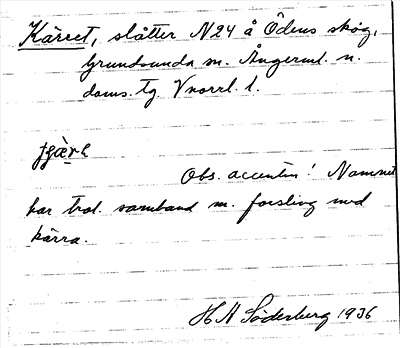 Kärret, slåtter N24 å Ödens skog,
Grundsunda sn. Ångerml. n.
doms. tg Vnorrl. l.
Obs. accenten! Namnet
har trol. samband m. forsling med
kärra.
H A Söderberg 1936